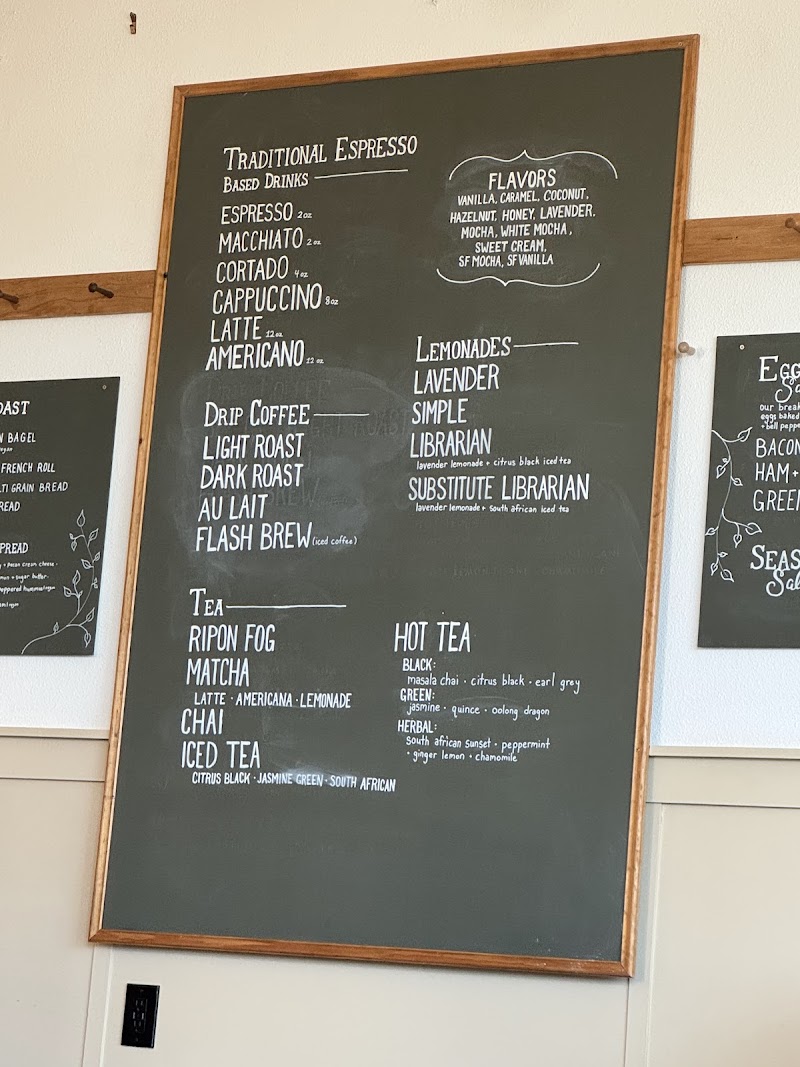 TRADITIONAL ESPRESSO
BASED DRINKS
ESPRESSO 2oz
MACCHIATO 2oz
CORTADO 4oz
CAPPUCCINO 8oz
LATTE 12oz
AMERICANO 12oz
DRIP COFFEE
LIGHT ROAST
DARK ROAST
AU LAIT
FLASH BREW (iced coffee)
TEA
RIPON FOG
MATCHA
LATTE · AMERICANA · LEMONADE
CHAI
ICED TEA
CITRUS BLACK · JASMINE GREEN · SOUTH AFRICAN
FLAVORS
VANILLA, CARAMEL, COCONUT,
HAZELNUT, HONEY, LAVENDER,
MOCHA, WHITE MOCHA,
SWEET CREAM,
SF MOCHA, SF VANILLA
LEMONADES
LAVENDER
SIMPLE
LIBRARIAN
lavender lemonade + citrus black iced tea
SUBSTITUTE LIBRARIAN
lavender lemonade + south african iced tea
HOT TEA
BLACK:
masala chai · citrus black · earl grey
GREEN:
jasmine · quince · oolong dragon
HERBAL:
south african sunset · peppermint
· ginger lemon · chamomile
OAST
N BAGEL
FRENCH ROLL
LTI GRAIN BREAD
READ
PREAD
+ pecan cream cheese ·
+ sugar butter ·
EGG
our break
eggs baked
+ bell peppe
BACON
HAM +
GREEN
SEAS